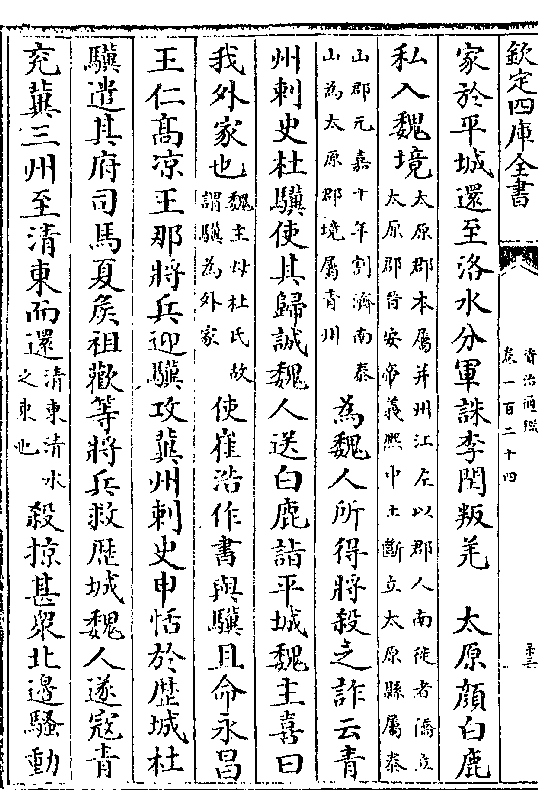 欽定四庫全書
資治通鑑
卷一百二十四
家於平城還至洛水分軍誅李閏叛羌　太原顔白鹿
私入魏境太原郡本屬并州江左以郡人南徙者僑立
太原郡晉安帝義熙中土斷立太原縣屬泰
山郡元嘉十年割濟南泰
山為太原郡境屬青州
為魏人所得將殺之詐云青
州刺史杜驥使其歸誠魏人送白鹿詣平城魏主喜曰
我外家也魏主母杜氏故
謂驥為外家
使崔浩作書與驥且命永昌
王仁髙凉王那將兵迎驥攻冀州刺史申恬於歴城杜
驥遣其府司馬夏矦祖歡等將兵救歴城魏人遂寇青
兖冀三州至清東而還清東清水
之東也
殺掠甚衆北邉騷動